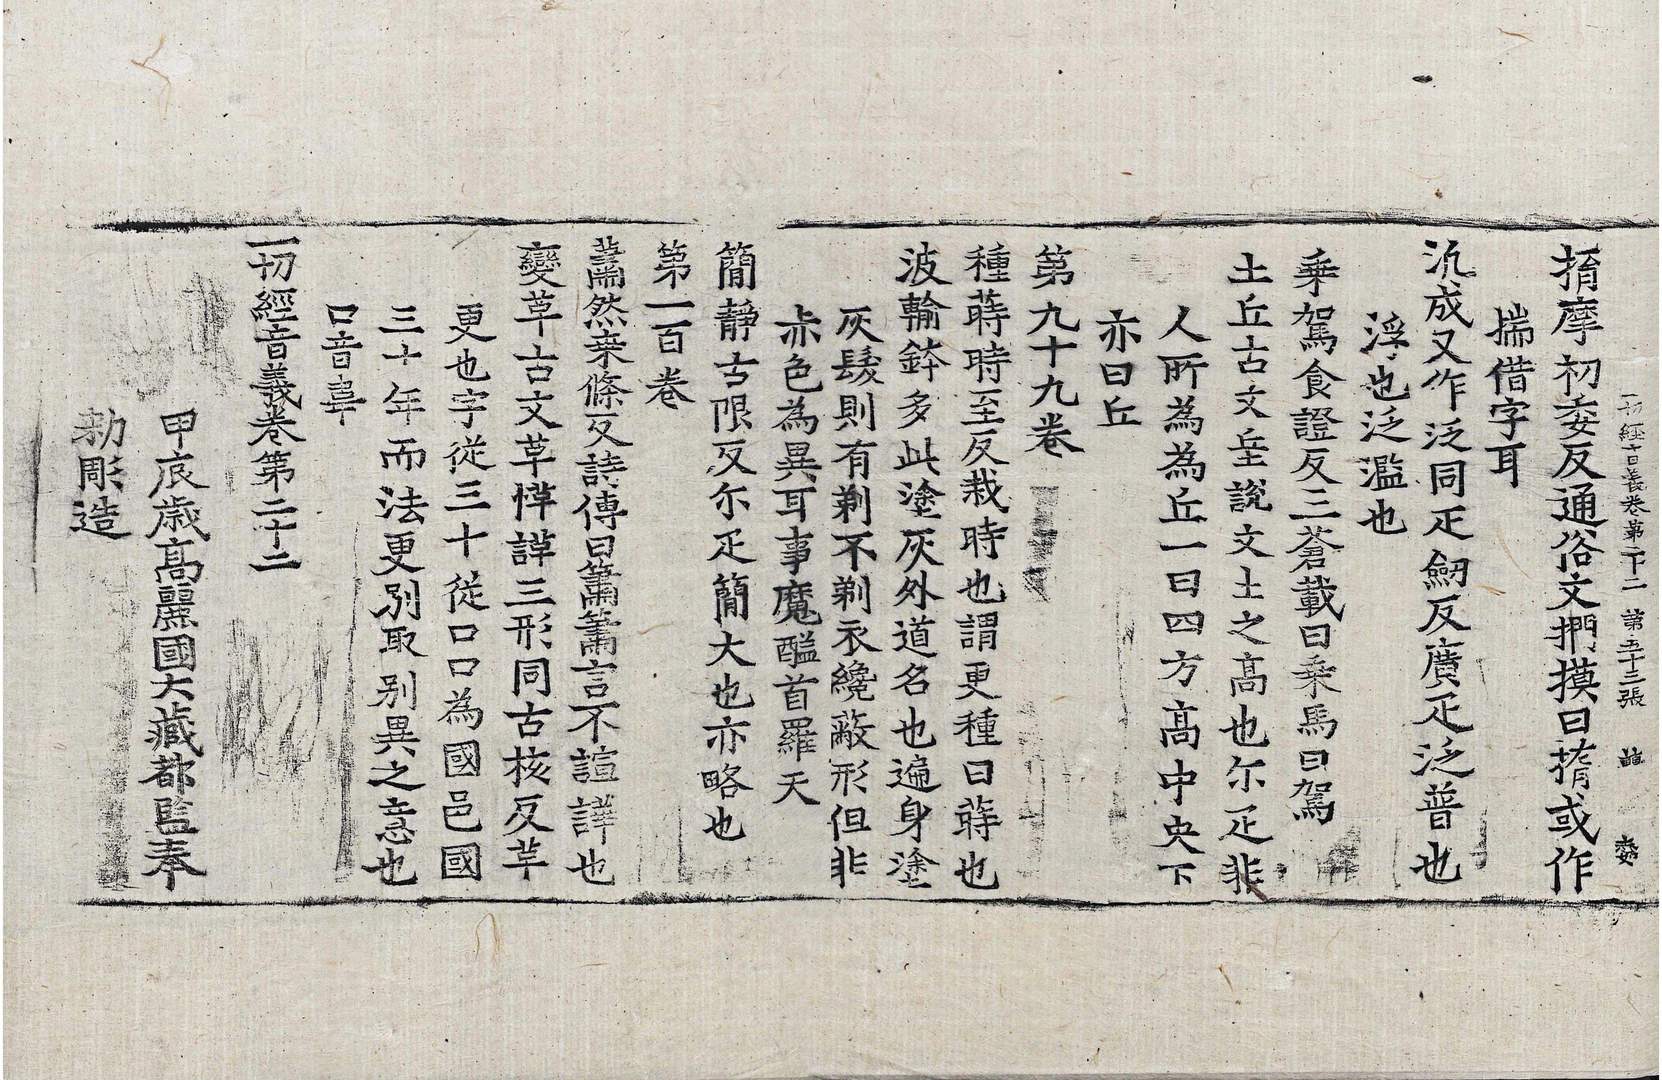 一切經音義卷第二十二 第五十三張
揹摩初委反通俗文捫摸曰揹或作
揣借字耳
汎成又作泛同疋劒反廣疋泛普也
浮也泛濫也
乗駕食證反三蒼載曰乗馬曰駕
土丘古文坵說文土之髙也尒疋非
人所為為丘一曰四方髙中央下
亦曰丘
第九十九卷
種蒔時至反栽時也謂更種曰蒔也
波輸鉢多此塗灰外道名也遍身塗
灰髮則有剃不剃衣纔蔽形但非
赤色為異耳事魔醯首羅天
簡靜古限反尒疋簡大也亦略也
第一百卷
蕭然桒條反詩傳曰簫簫言不諠譁也
變革古文革愅諽三形同古核反革
更也字從三十從口口為國邑國
三十年而法更别取别異之意也
口音韋
一切經音義卷第二十二
甲辰歳髙麗國大藏都監奉
勅彫造